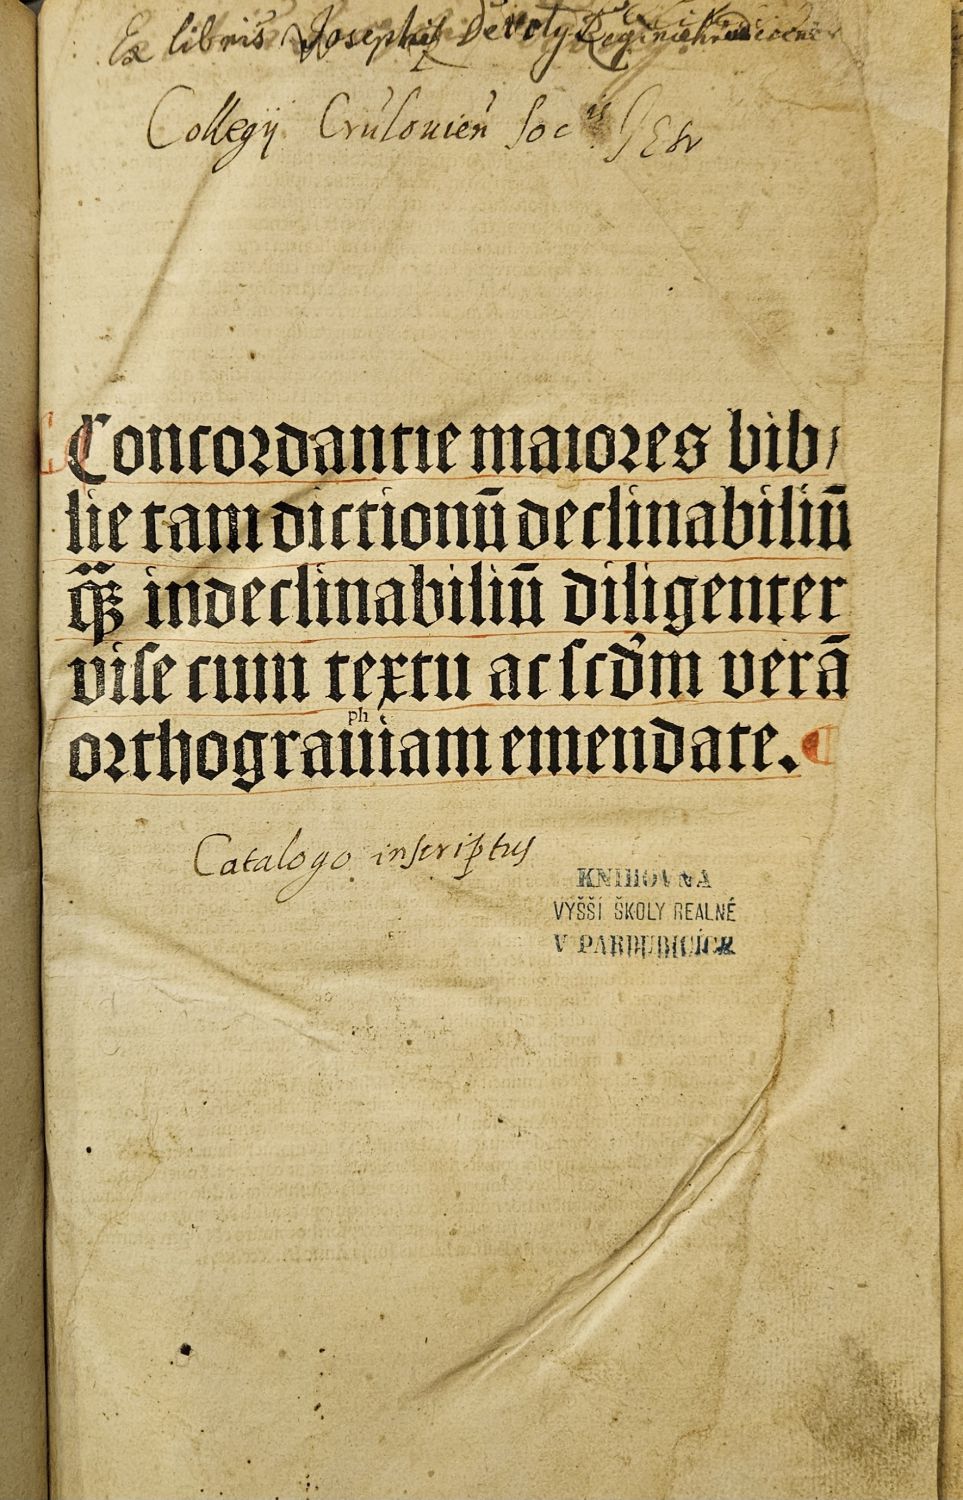 Ex libris Josephi Devoty
Collegij Crulouien̄ Socⁱˢ JEsv
Concordantie maiores bib/
lie tam dictionū declinabiliū
qꝫ indeclinabiliū diligenter
vise cum textu ac scd̓m verā
ph
orthograuiam emendate.
Catalogo inscriptus
KNIHOVNA
VYŠŠÍ ŠKOLY REALNÉ
V PARDUBICÍCH